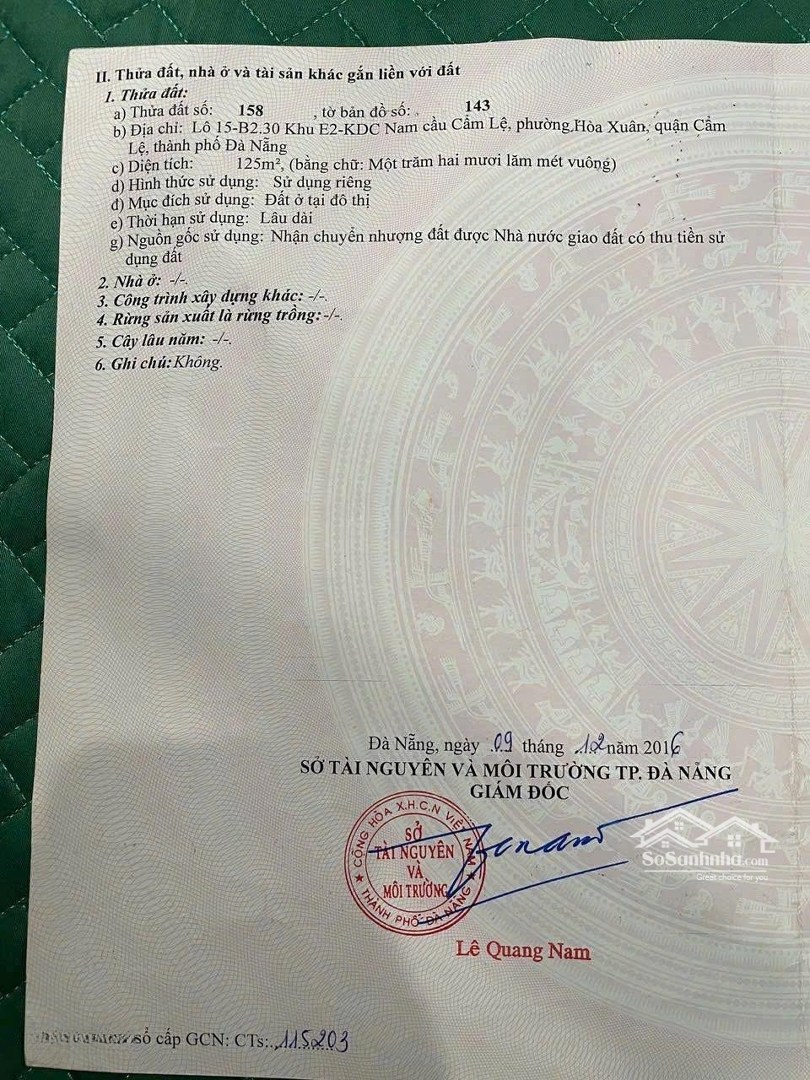 II. Thửa đất, nhà ở và tài sản khác gắn liền với đất
1. Thửa đất:
a) Thửa đất số: 158 , tờ bản đồ số: 143
b) Địa chỉ: Lô 15-B2.30 Khu E2-KDC Nam cầu Cẩm Lệ, phường Hòa Xuân, quận Cẩm
Lệ, thành phố Đà Nẵng
c) Diện tích: 125m², (bằng chữ: Một trăm hai mươi lăm mét vuông)
d) Hình thức sử dụng: Sử dụng riêng
đ) Mục đích sử dụng: Đất ở tại đô thị
e) Thời hạn sử dụng: Lâu dài
g) Nguồn gốc sử dụng: Nhận chuyển nhượng đất được Nhà nước giao đất có thu tiền sử
dụng đất
2. Nhà ở: -/-.
3. Công trình xây dựng khác: -/-.
4. Rừng sản xuất là rừng trồng: -/-.
5. Cây lâu năm: -/-.
6. Ghi chú: Không.
Đà Nẵng, ngày 09 tháng 12 năm 2016
SỞ TÀI NGUYÊN VÀ MÔI TRƯỜNG TP. ĐÀ NẴNG
GIÁM ĐỐC
CỘNG HÒA X.H.C.N VIỆT NAM
SỞ
TÀI NGUYÊN
VÀ
MÔI TRƯỜNG
THÀNH PHỐ ĐÀ NẴNG
SoSanhnha.com
Great choice for you
Lê Quang Nam
số cấp GCN: CTs: 115203